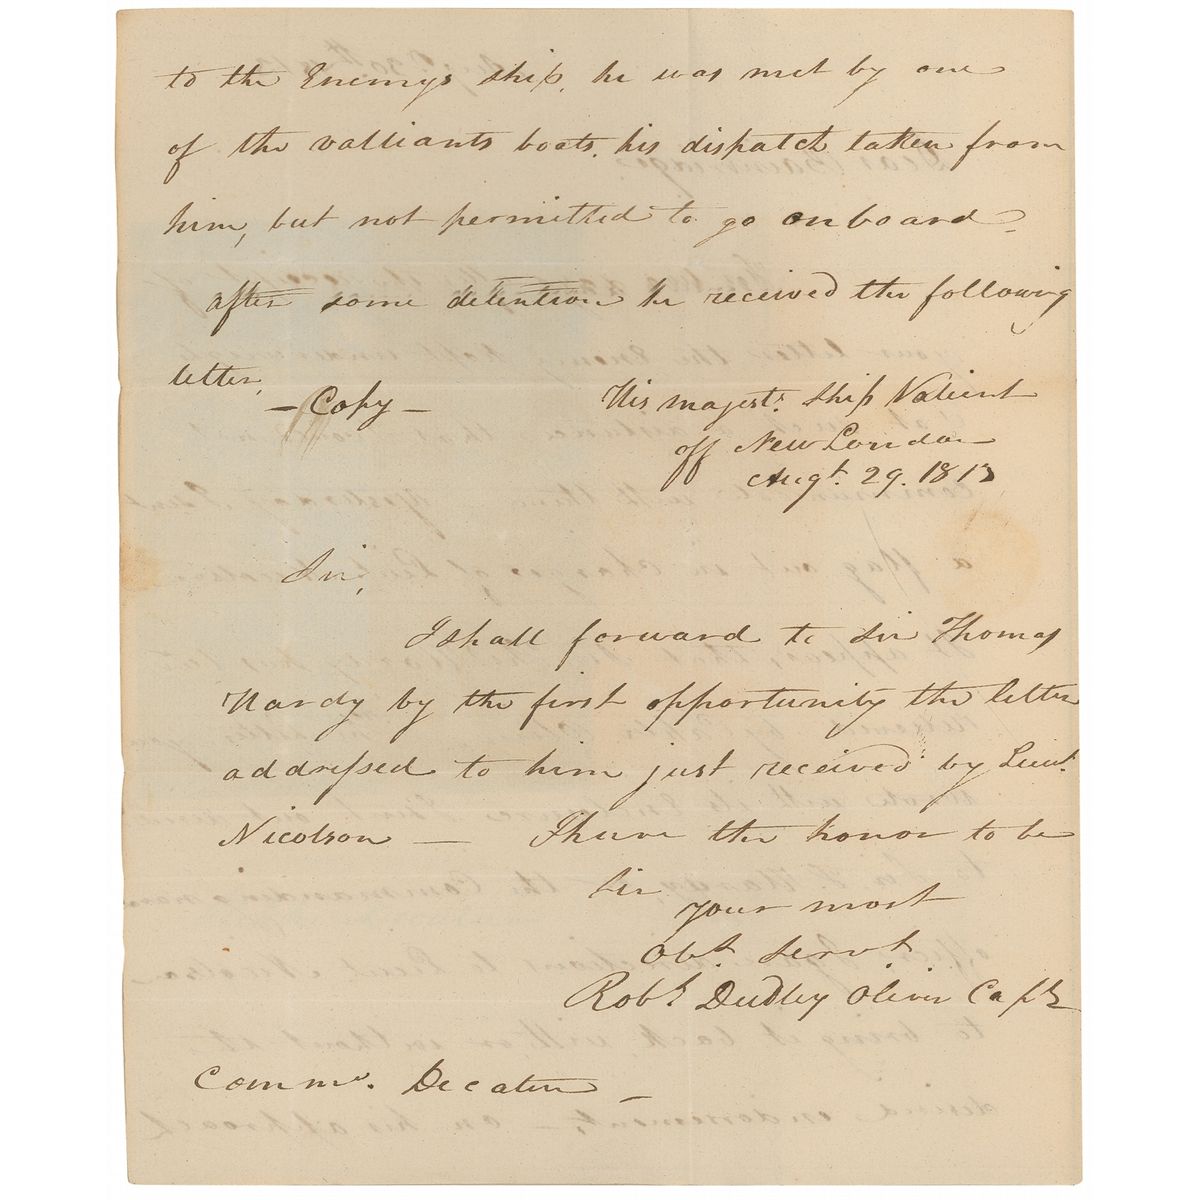 to the Enemys ship, he was met by one
of the valliants boats, his dispatch taken from
him, but not permitted to go onboard
after some detention he received the following
letter,
— Copy —
His majests. Ship Valient
off New London
Augt. 29. 1813
Sir,
I shall forward to Sir Thomas
Hardy by the first opportunity the letter
addressed to him just received by Lieut.
Nicolson — I have the honor to be
Sir
your most
Obt. Servt
Robt Dudley Oliver Captn
Commo. Decatur —